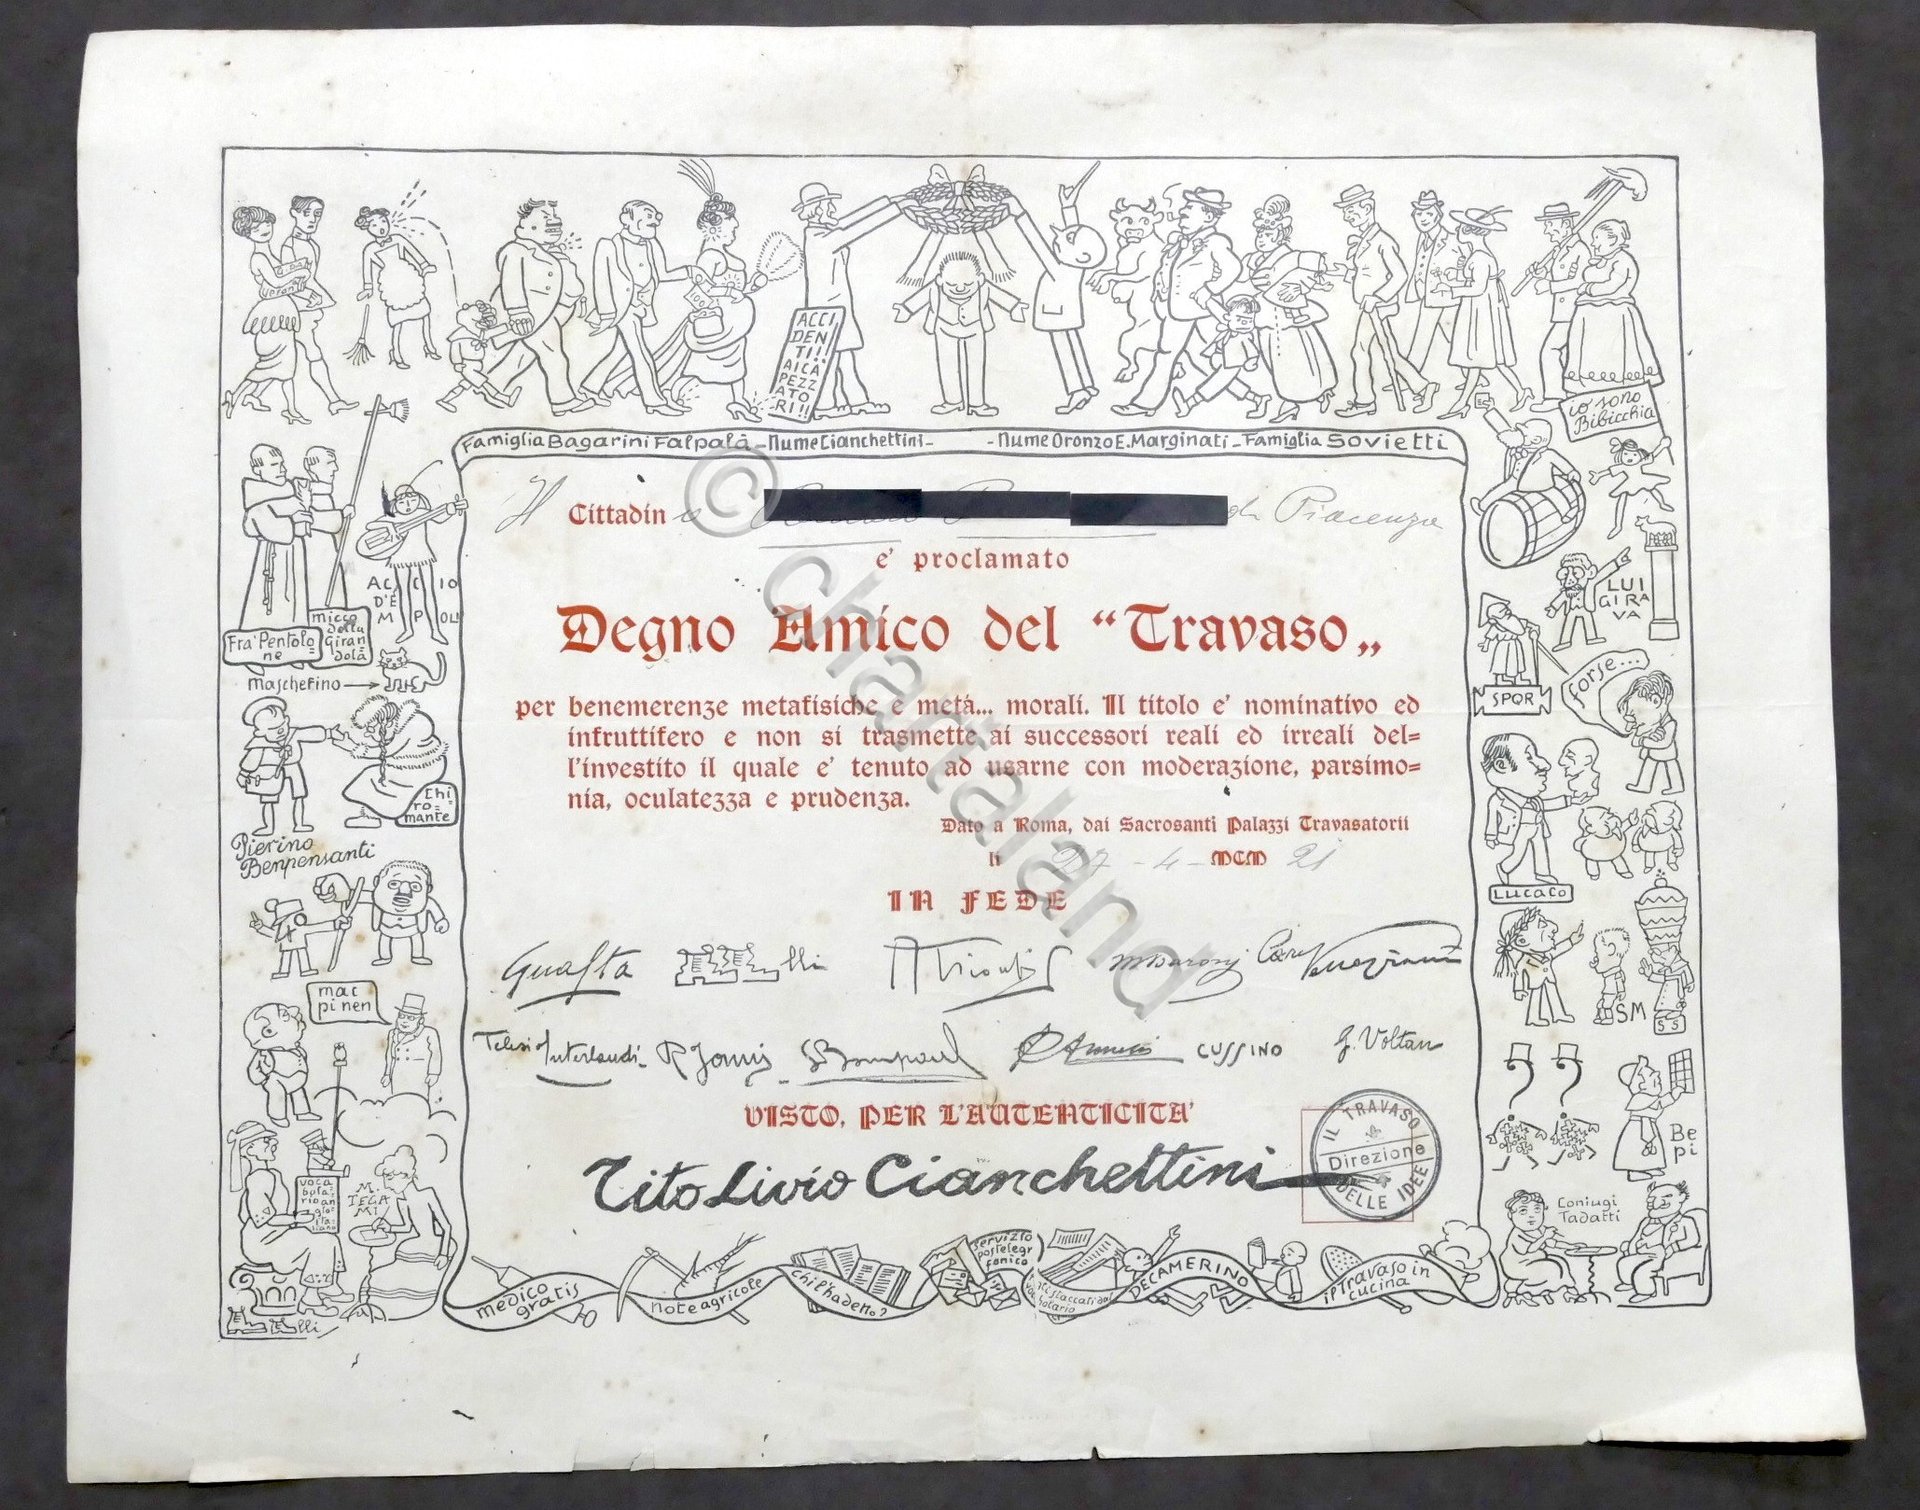 ACCI
DEN
TI!!
AI CA
PEZZ
ATO
RI!!
Famiglia Bagarini Falpalà - Nume Cianchettini - - Nume Oronzo E. Marginati - Famiglia Sovietti
io sono
Bibicchia
Il Cittadino da Piacenza
e' proclamato
Degno Amico del “Travaso„
per benemerenze metafisiche e metà... morali. Il titolo e' nominativo ed
infruttifero e non si trasmette ai successori reali ed irreali del=
l'investito il quale e' tenuto ad usarne con moderazione, parsimo=
nia, oculatezza e prudenza.
Dato a Roma, dai Sacrosanti Palazzi Travasatorii
li 27 - 4 - MCM 21
IN FEDE
Guasta
Telesio Interlandi
CUSSINO
G. Voltan
VISTO, PER L'AUTENTICITA'
Tito Livio Cianchettini
IL TRAVASO
Direzione
DELLE IDEE
Fra' Pentolo=
ne
micco
della
Giran=
dola
AC C IO
D'E
M P OLI
maschefino
Chi
ro=
mante
Pierino
Benpensanti
mac
pinen
voca
bola=
rio an
glo=
ita=
liano
M.
TEGA
MI
LUI
GIRA
VA
SPQR
forse...
LUCACO
SM
SS
Be
pi
Coniugi
Tadatti
medico
gratis
note agricole
chi l'ha detto?
servizio
postelegr
fonico
DECAMERINO
il Travaso in
cucina
© chartaland